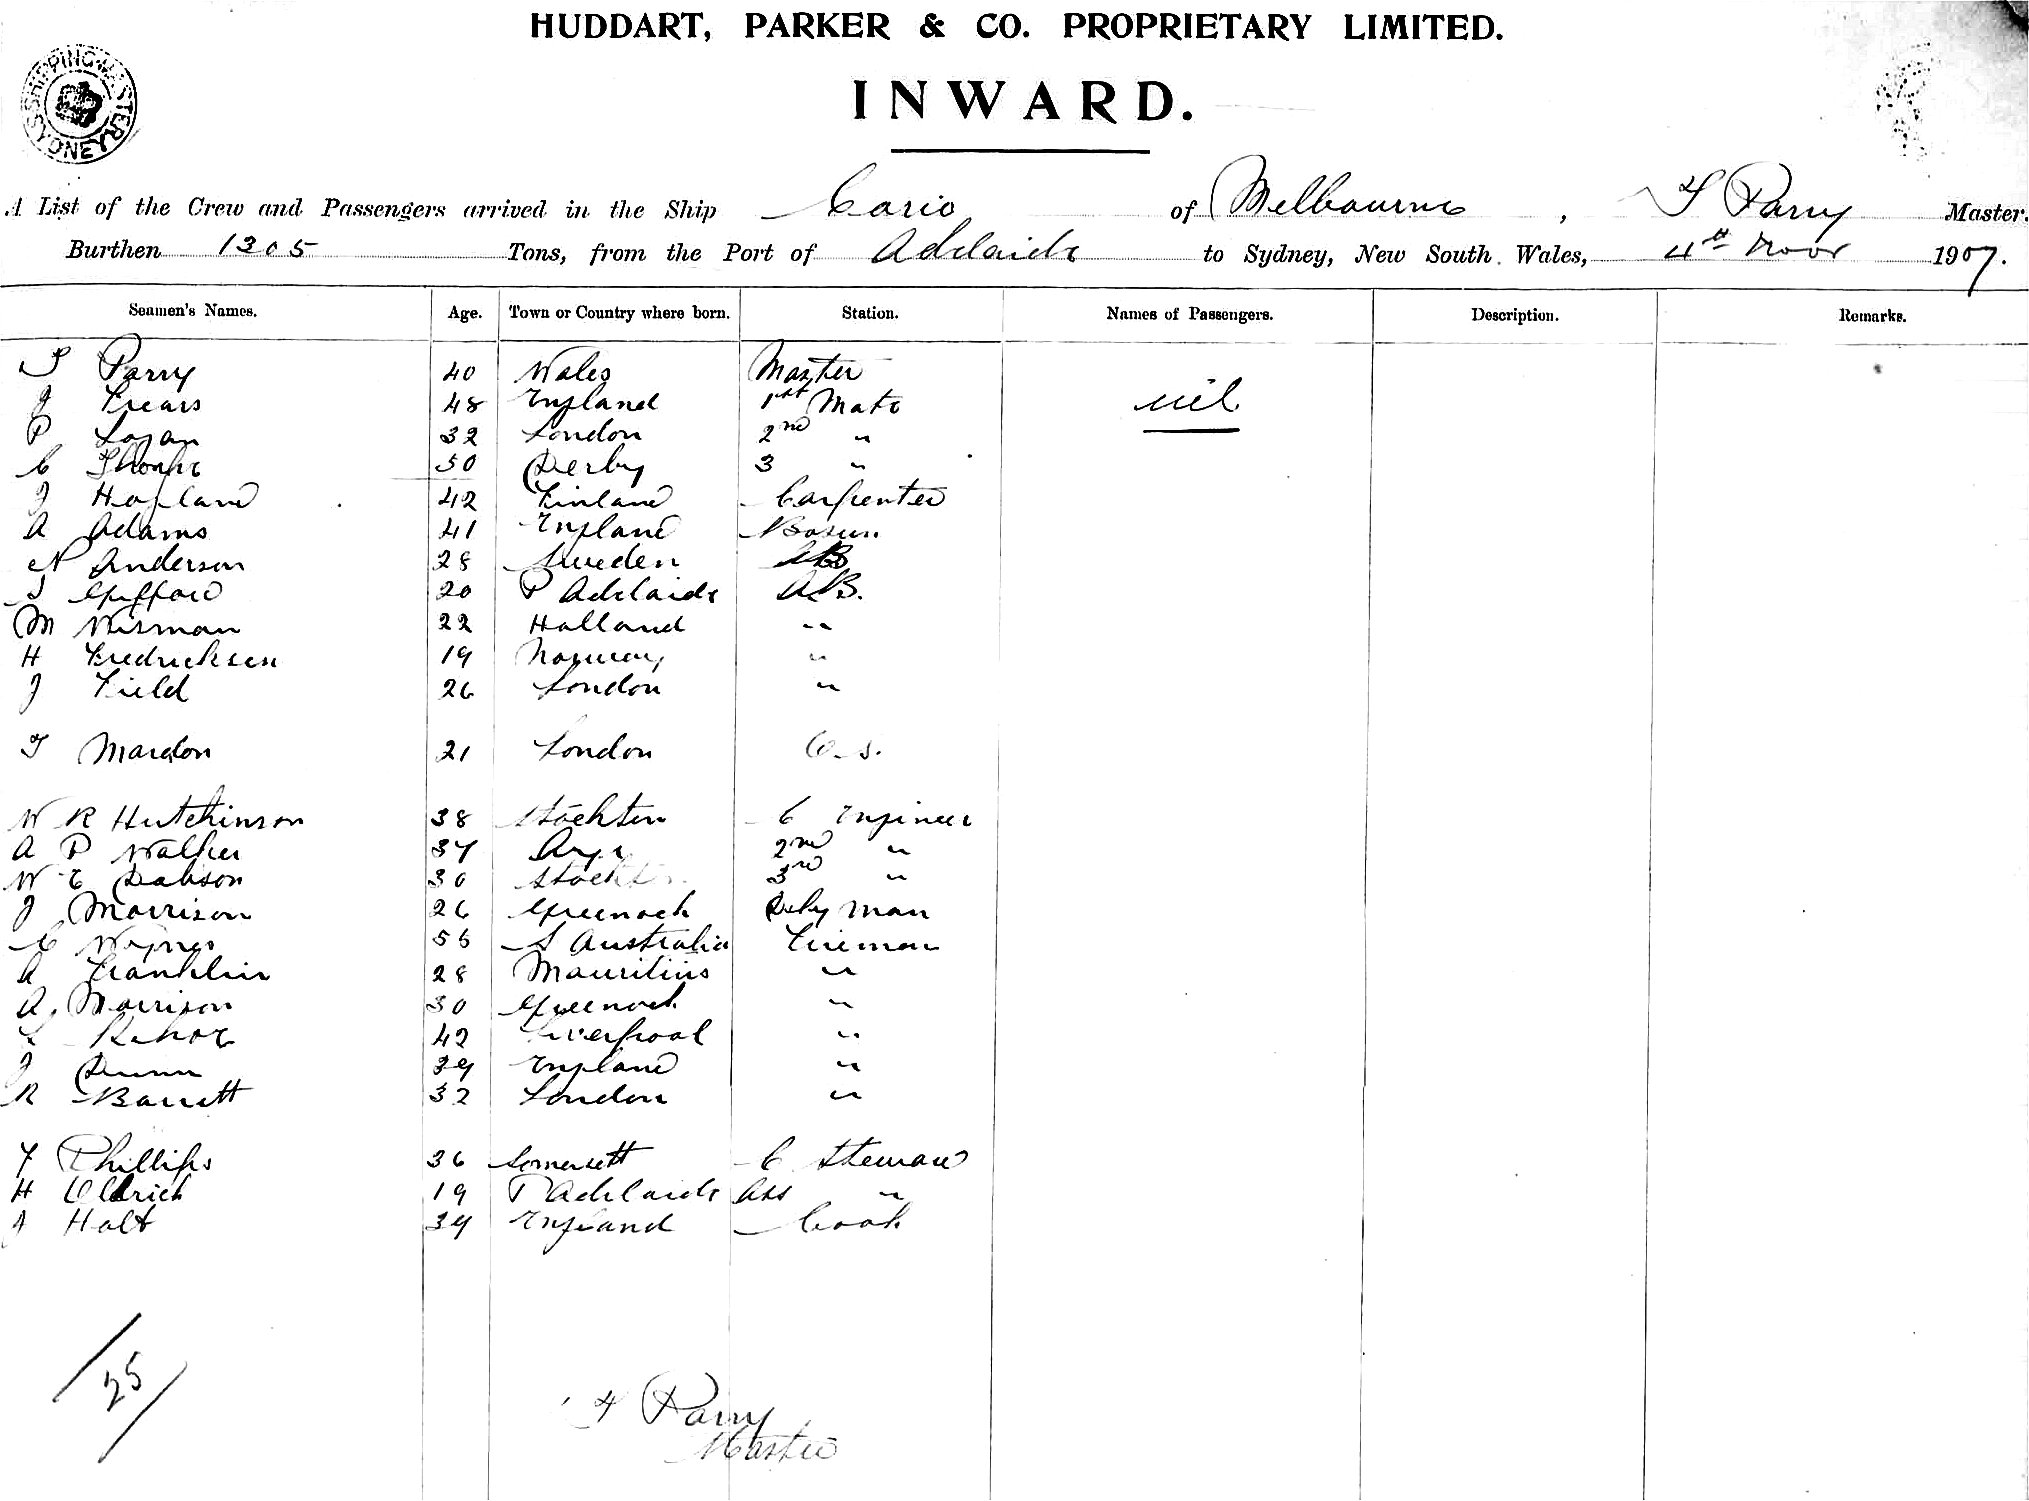 HUDDART, PARKER & CO. PROPRIETARY LIMITED.
INWARD.
SHIPPING MASTER SYDNEY
A List of the Crew and Passengers arrived in the Ship Corio of Melbourne, T Parry Master.
Burthen 1305 Tons, from the Port of Adelaide to Sydney, New South Wales, 4th Novr 1907.
Seamen's Names. Age. Town or Country where born. Station. Names of Passengers. Description. Remarks.
T Parry 40 Wales Master
J Frears 48 England 1st Mate nil
P Logan 32 London 2nd "
C Thorpe 50 Derby 3 "
J Hogland 42 Finland Carpenter
A Adams 41 England Bosun
N Anderson 28 Sweden AB
S Gifford 20 P Adelaide AB.
M Wisman 22 Holland "
H Fredricksen 19 Norway "
J Field 26 London "
T Mardon 21 London O.S.
W R Hutchinson 38 Stockton C Engineer
A P Walker 37 2nd "
W E Dobson 30 Stockton 3rd "
J Morrison 26 Greenock Dky man
C 56 S Australia Fireman
A Franklin 28 Mauritius "
A. Morrison 30 Greenock "
42 Liverpool "
J Dunn 39 England "
R Barrett 32 London "
F Phillips 36 Somersett C Steward
H Oldrich 19 P Adelaide Ass "
J Holt 39 England Cook
25
T Parry
Master